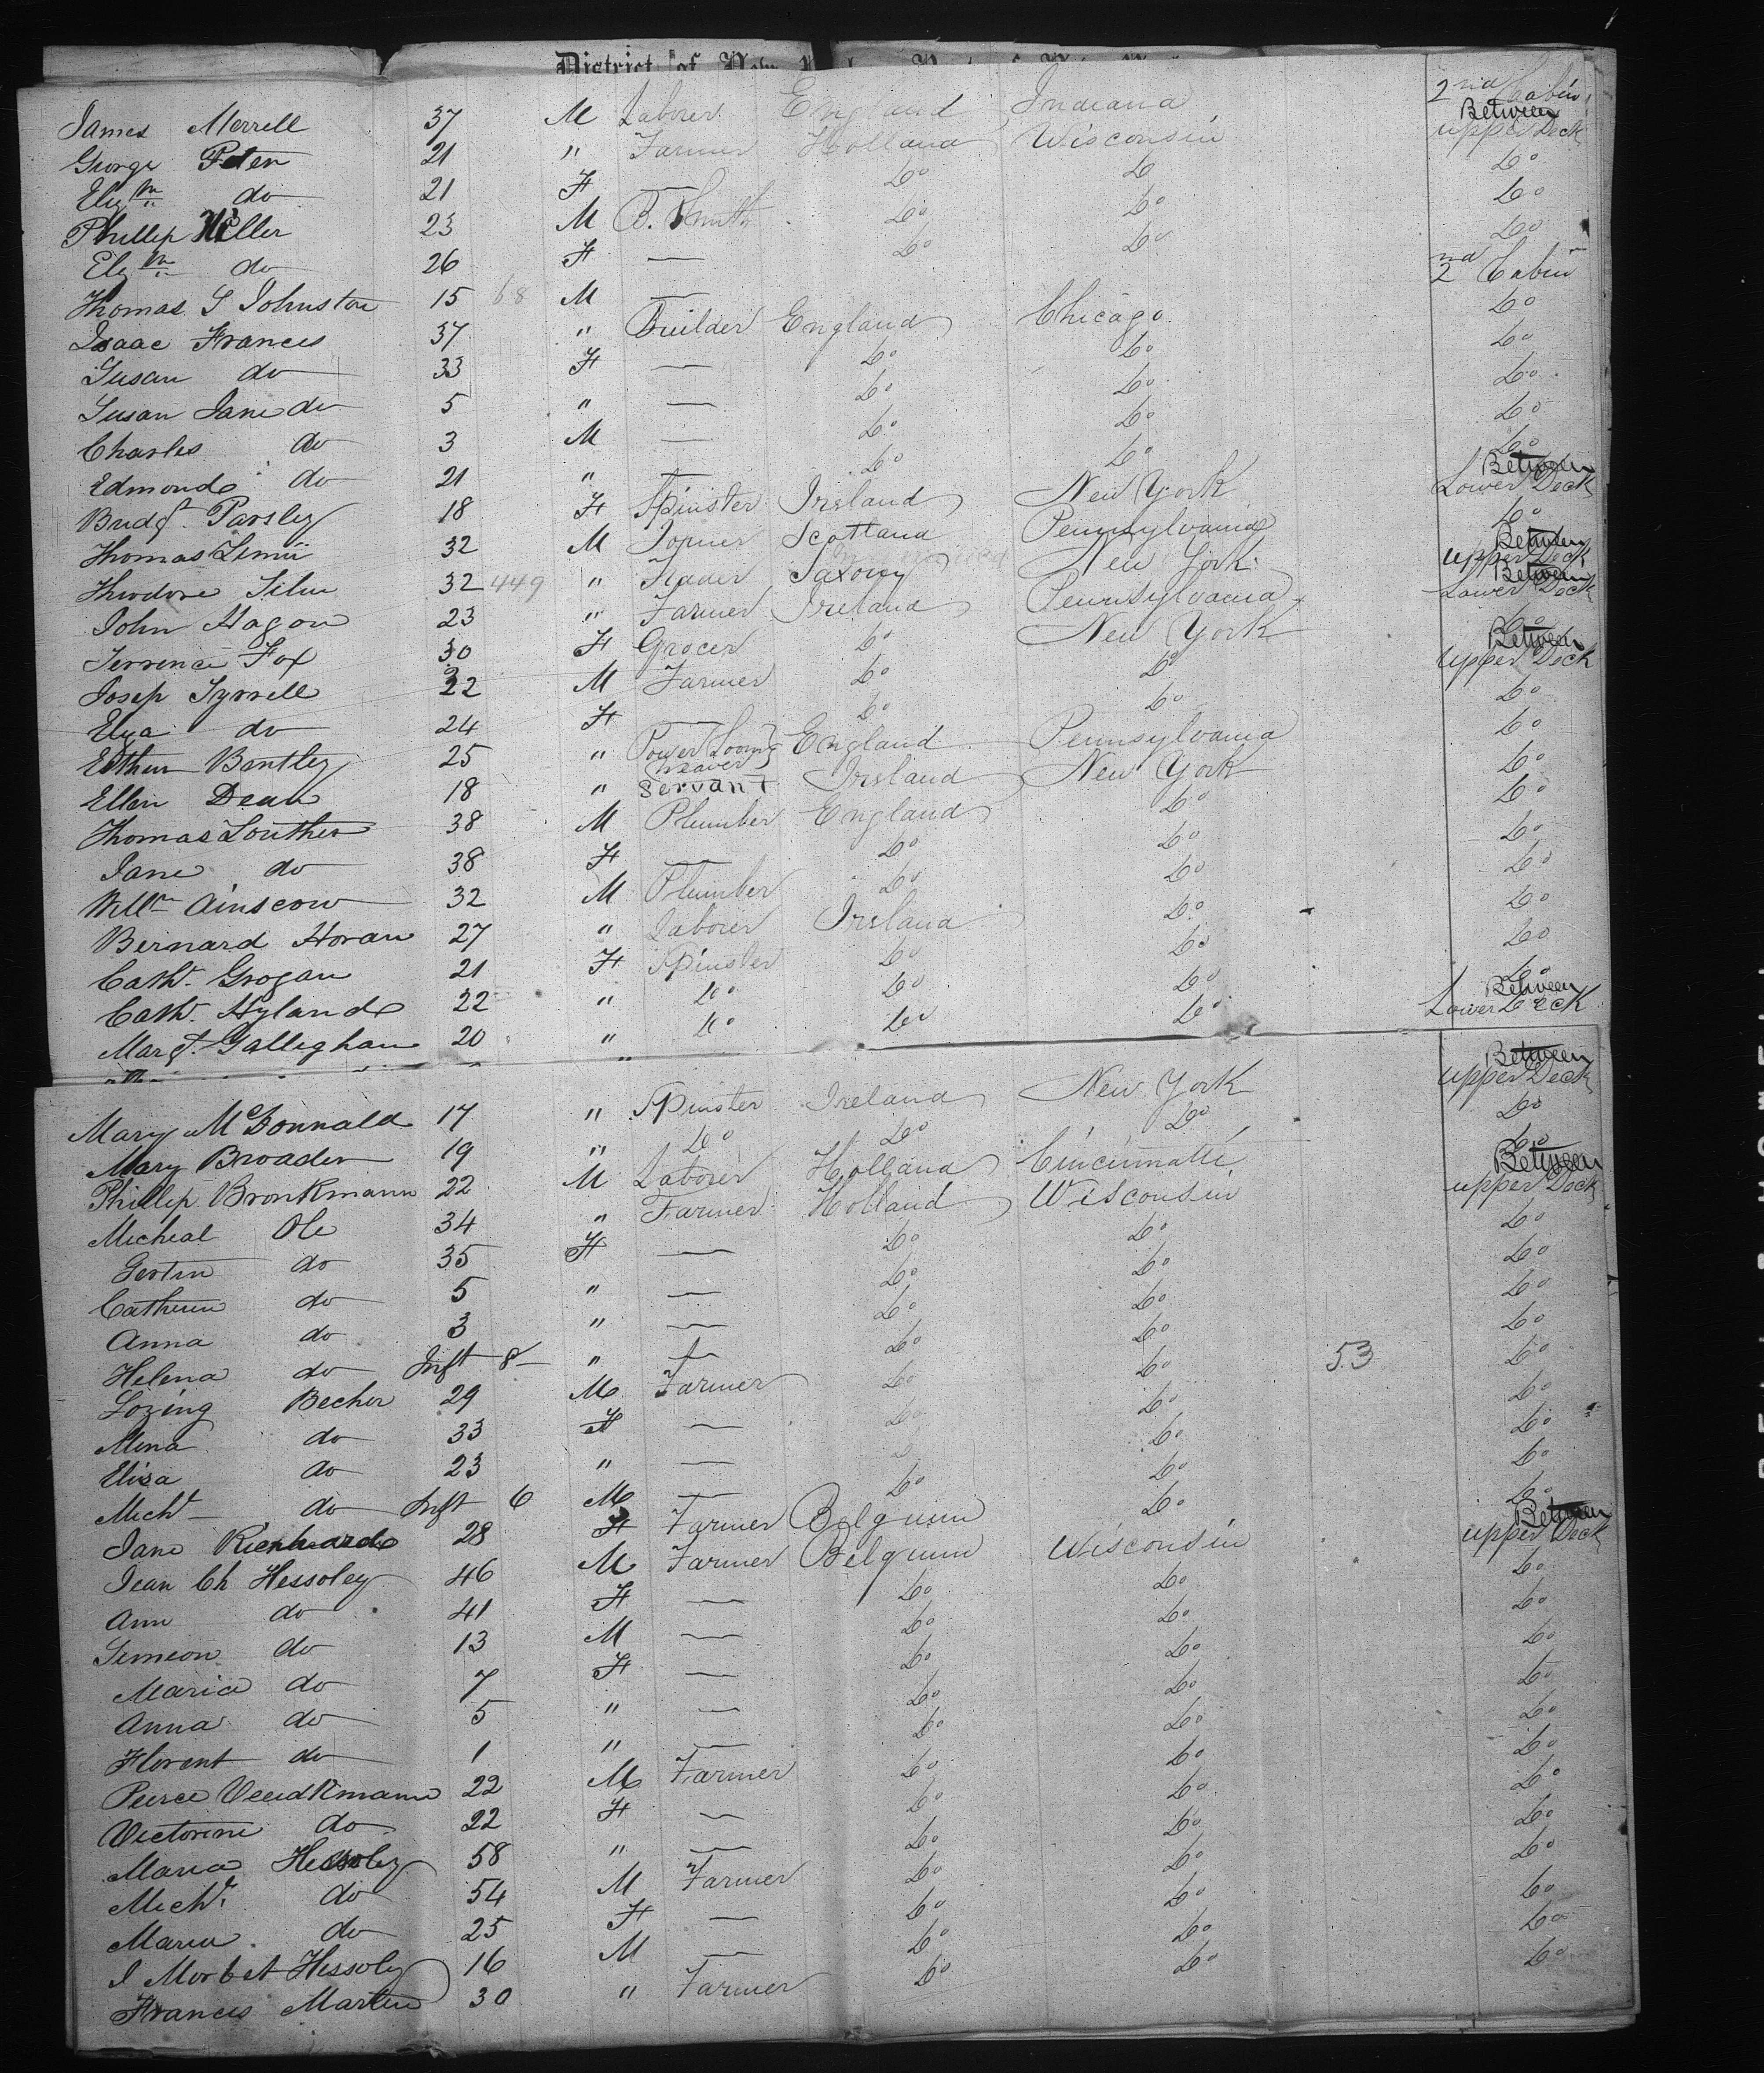 District of New
James Merrell 37 M Laborer England Indiana 2nd Cabin
George Peter 21 " Farmer Holland Wisconsin Between upper Deck
Elizth do 21 F — Do Do Do
Phillip Heller 23 M B. Smith Do Do Do
Elizth do 26 F — Do Do Do
Thomas S Johnston 15 68 M — 2nd Cabin
Isaac Frances 37 " Builder England Chicago Do
Susan do 33 F — Do Do Do
Susan Jane do 5 " — Do Do Do
Charles do 3 M — Do Do Do
Edmond do 21 " — Do Do Do
Bridgt. Parsley 18 F Spinster Ireland New York Between Lower Deck
Thomas 32 M Joiner Scotland Pennsylvania Do
Theodore Silm 32 449 " Trader Saxony New York Between upper Deck
John Hagon 23 " Farmer Ireland Pennsylvania Between Lower Deck
Terrence Fox 30 F Grocer Do New York Do
Josep Tyrrell 22 M Farmer Do Do Between upper Deck
Elza do 24 F — Do Do Do
Esther Bentley 25 " Power Loom Weaver England Pennsylvania Do
Ellen Dean 18 " Servant Ireland New York Do
Thomas Louther 38 M Plumber England Do Do
Jane do 38 F — Do Do Do
Willm Ainscow 32 M Plumber Do Do Do
Bernard Horan 27 " Laborer Ireland Do Do
Cathe. Grogan 21 F Spinster Do Do Do
Cathe. Hyland 22 " Do Do Do Do
Margt. Gallighan 20 " Do Do Do Between Lower Deck
Mary McDonnald 17 " Spinster Ireland New York Between upper Deck
Mary Broader 19 " Do Do Do Do
Phillip Bronkmann 22 M Laborer Holland Cincinnatti Do
Micheal Ole 34 " Farmer Holland Wisconsin Between upper Deck
Gertin do 35 F — Do Do Do
Catherine do 5 " — Do Do Do
Anna do 3 " — Do Do Do
Helena do Inft 8 " — Do Do Do
Lozing Becher 29 M Farmer Do Do 53 Do
Mena do 33 F — Do Do Do
Eliza do 23 " — Do Do Do
Michl do Inft 6 M — Do Do Do
Jane Richards 28 F Farmer Belguim Do Do
Jean Ch Hessoley 46 M Farmer Belguim Wisconsin Between upper Deck
Ann do 41 F — Do Do Do
Simeon do 13 M — Do Do Do
Maria do 7 F — Do Do Do
Anna do 5 " — Do Do Do
Florent do 1 " — Do Do Do
Peirce Veudkmann 22 M Farmer Do Do Do
Victorine do 22 F — Do Do Do
Maria Hessoley 58 " — Do Do Do
Michl. do 54 M Farmer Do Do Do
Maria do 25 F — Do Do Do
J Morbet Hessoley 16 M — Do Do Do
Frances Martin 30 " Farmer Do Do Do